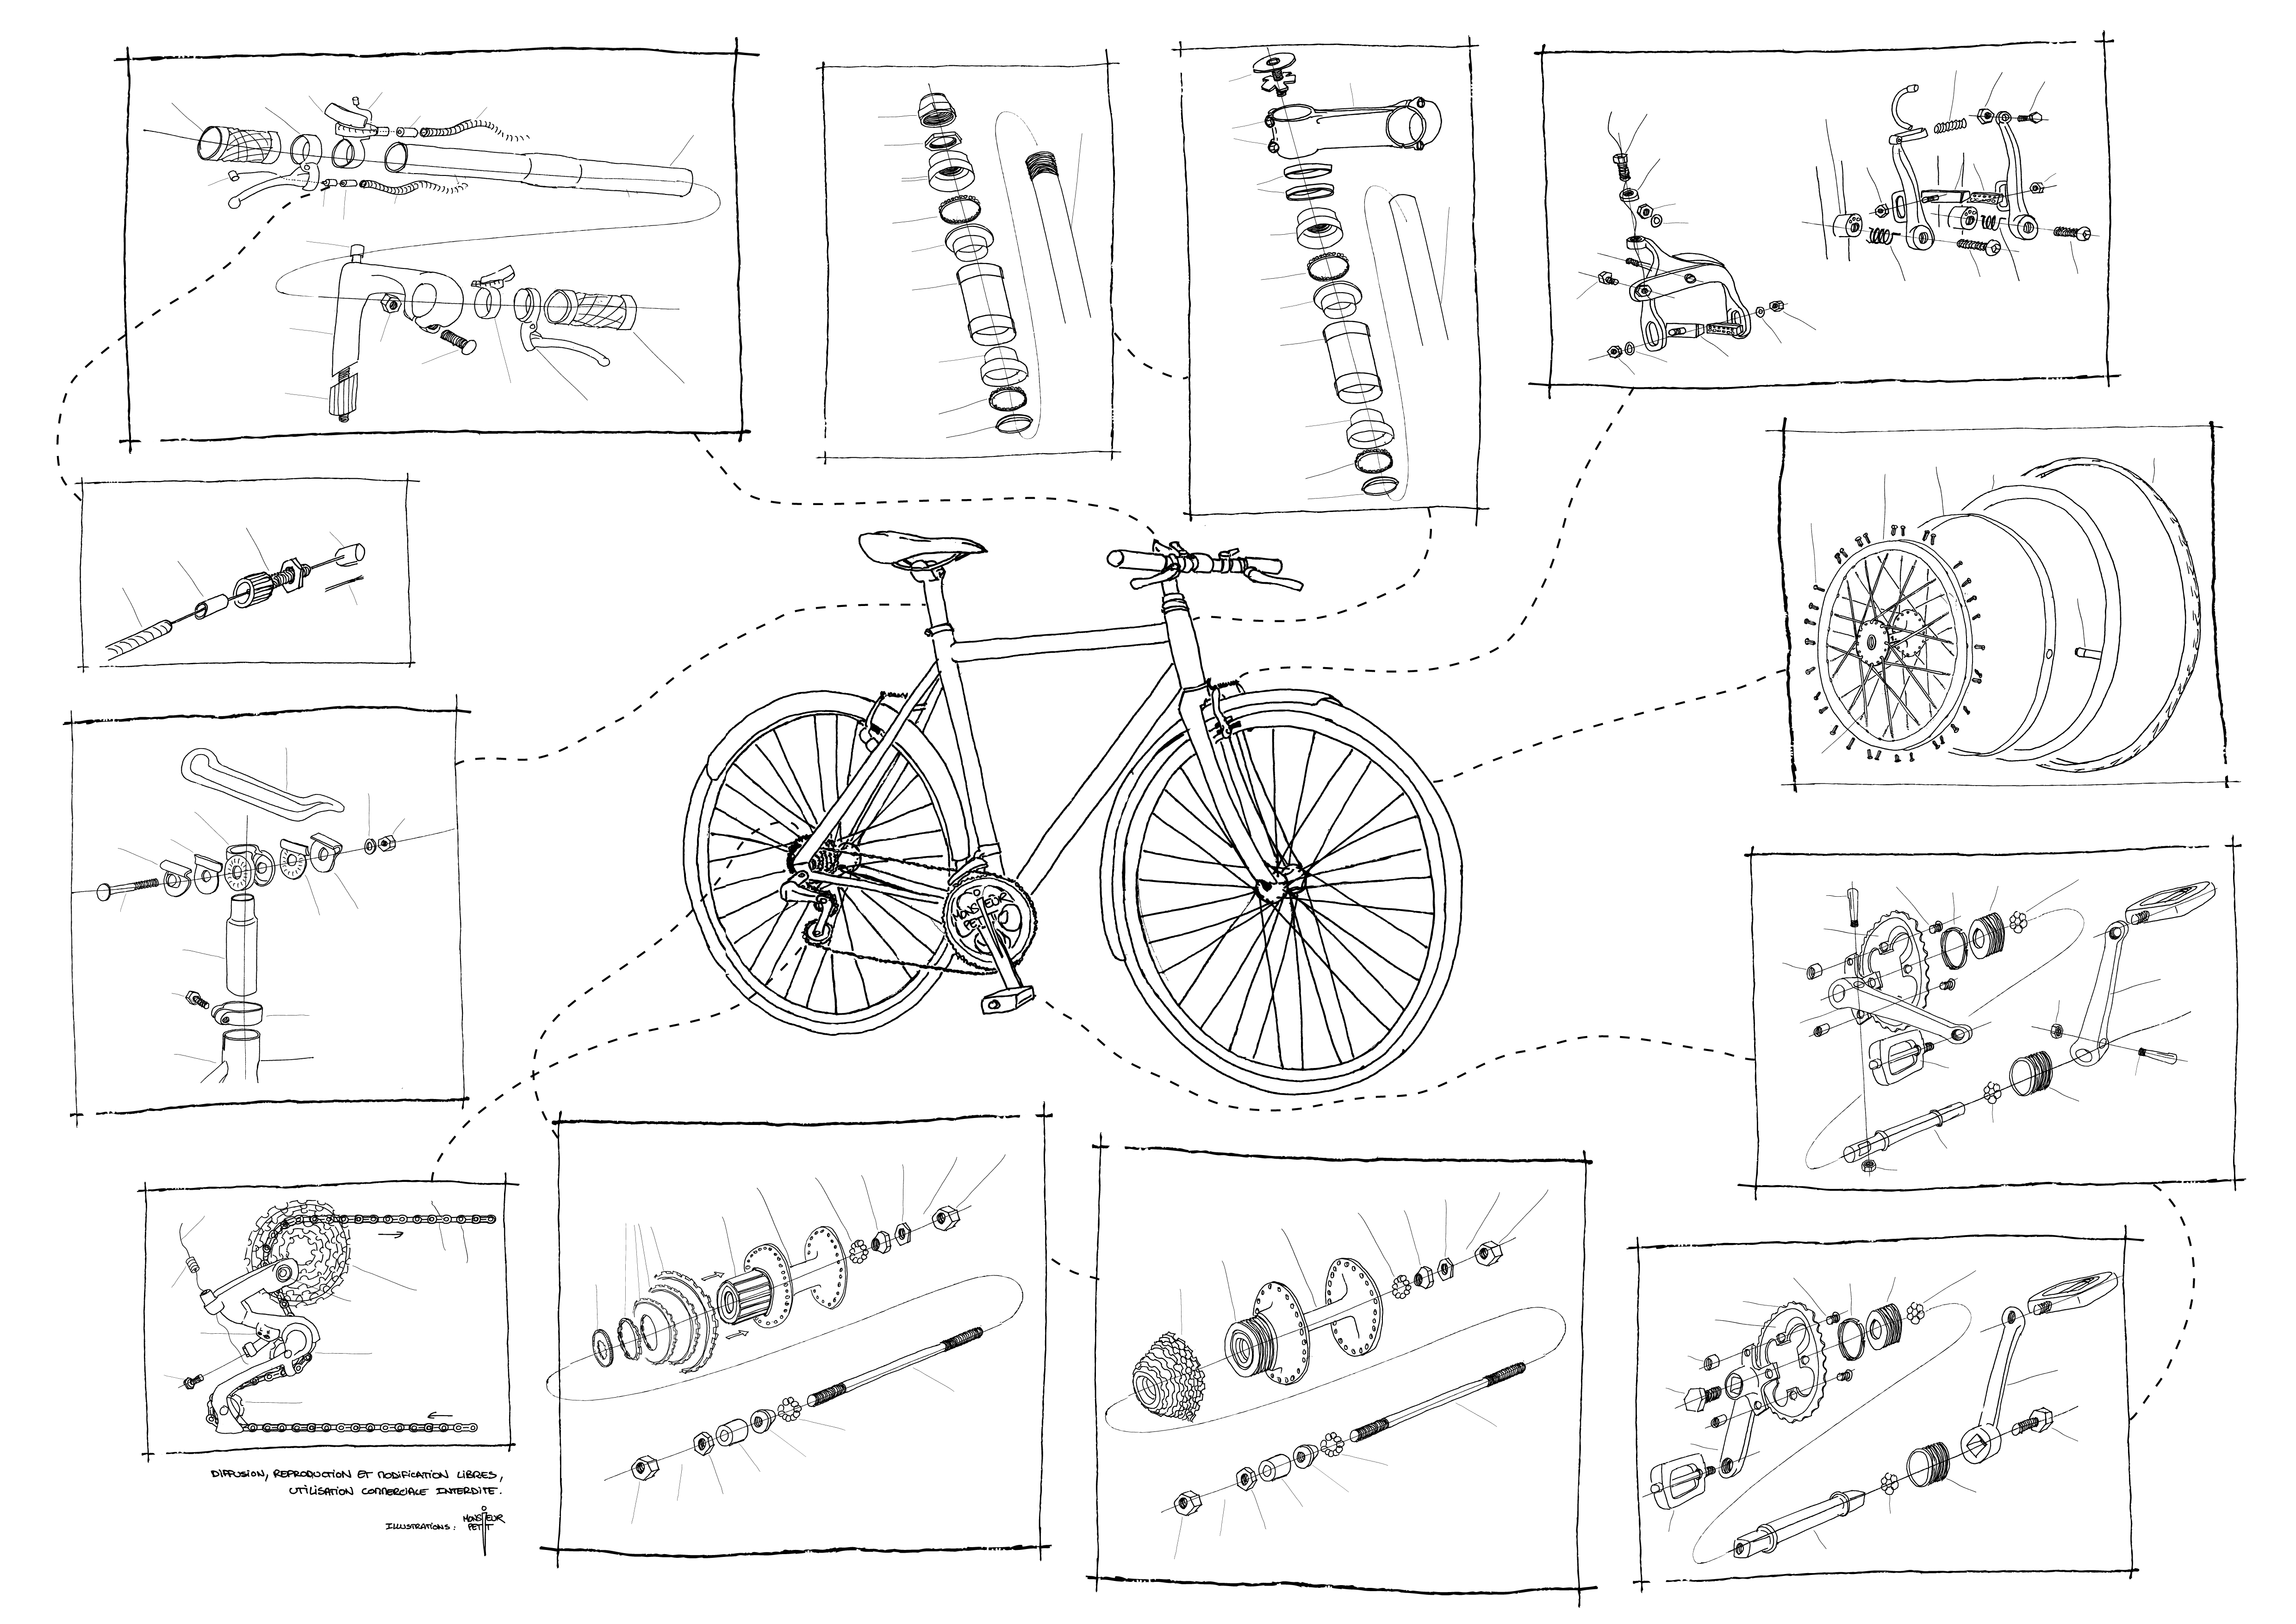 MONSIEUR
PETIT
DIFFUSION, REPRODUCTION ET MODIFICATION LIBRES,
UTILISATION COMMERCIALE INTERDITE.
ILLUSTRATIONS : MONSIEUR
PETIT